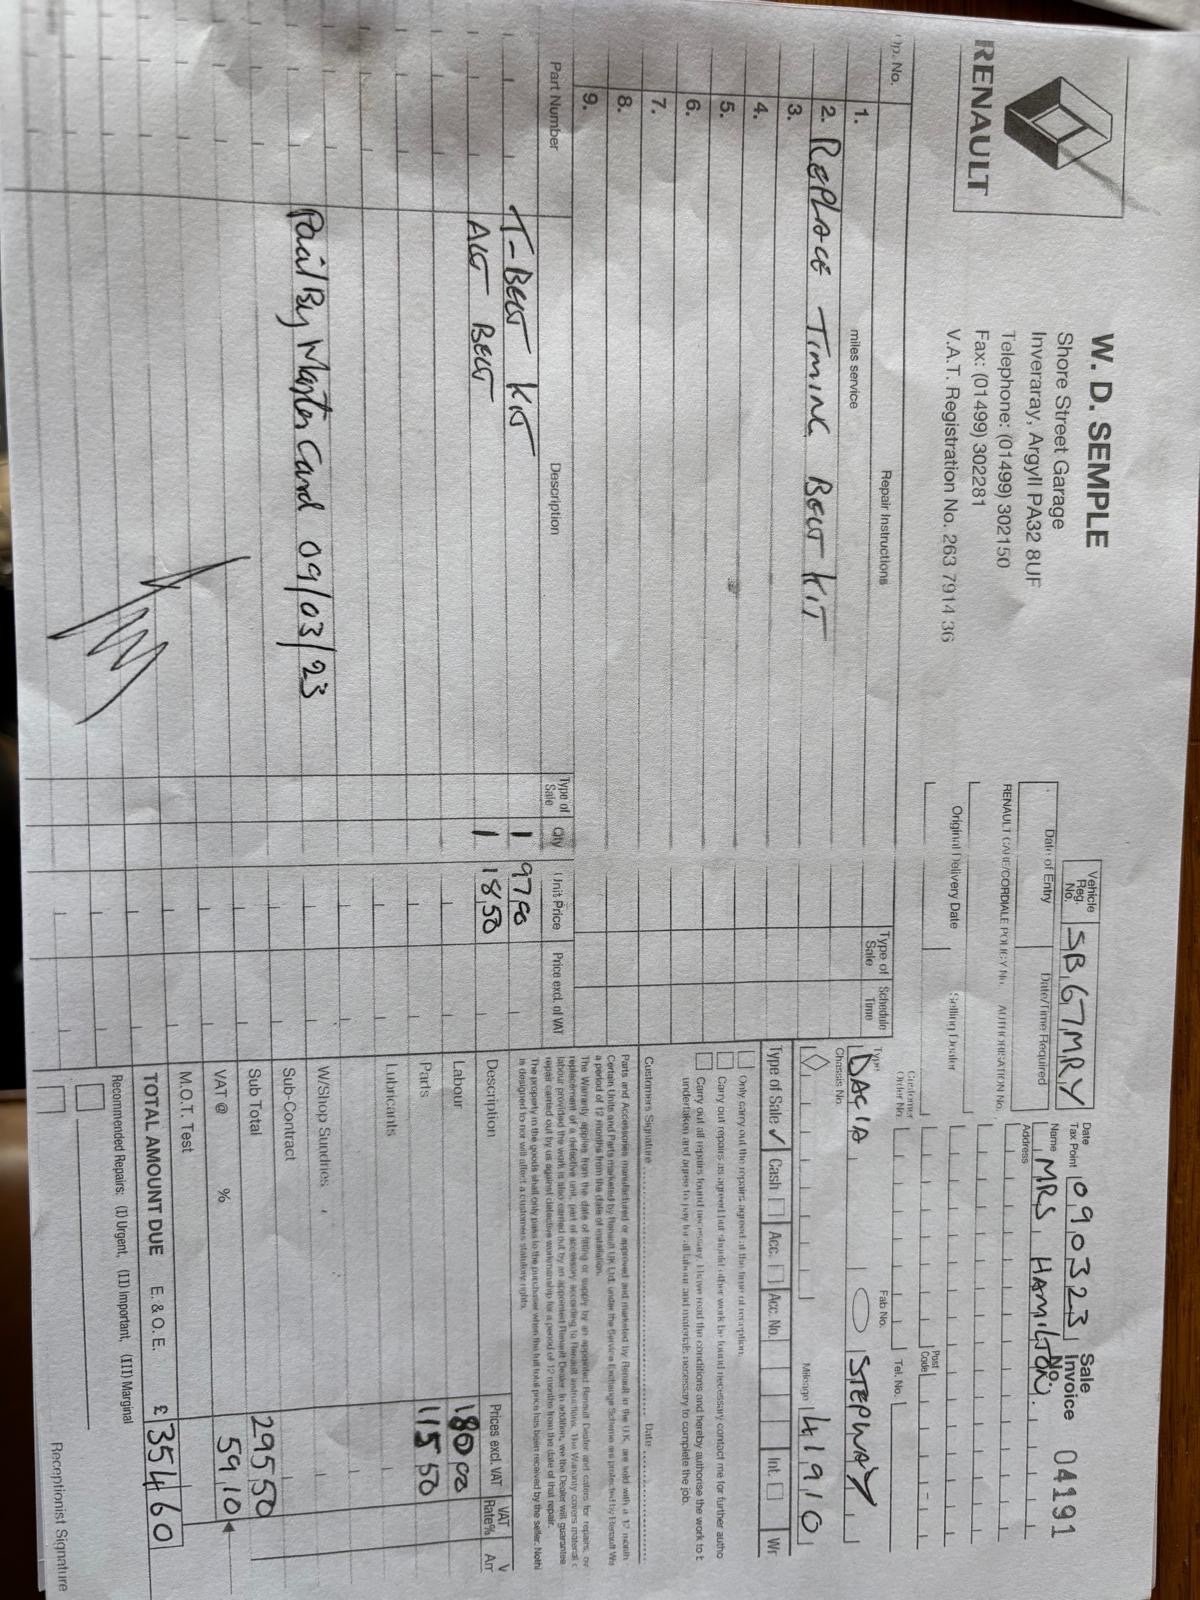 RENAULT
W. D. SEMPLE
Shore Street Garage
Inveraray, Argyll PA32 8UF
Telephone: (01499) 302150
Fax: (01499) 302281
V.A.T. Registration No. 263 7914 36
Vehicle Reg. No. SB67MRY
Date of Entry Date/Time Required
RENAULT CARE/CORDIALE POLICY No. AUTHORISATION No.
Original Delivery Date Selling Dealer
Date Tax Point 090323
Sale Invoice No. 04191
Name MRS HAMILTON.
Address
Post Code
Customer Order No. Tel. No.
Type DACIA Fab No. STEPWAY
Chassis No. Mileage 41910
Type of Sale ✓ Cash Acc. Acc. No. Int. Wr
Only carry out the repairs agreed at the time of reception.
Carry out repairs as agreed but should other work be found necessary contact me for further autho
Carry out all repairs found necessary. I have read the conditions and hereby authorise the work to b
undertaken and agree to pay for all labour and materials necessary to complete the job.
Customers Signature Date
Op. No. Repair Instructions Type of Sale Schedule Time
1. miles service
2. REPLACE TIMING BELT KIT
3.
4.
5.
6.
7.
8.
9.
Parts and Accessories manufactured or approved and marketed by Renault in the U.K. are sold with a 12 month
Certain Units and Parts marketed by Renault UK Ltd. under the Service Exchange Scheme are protected by Renault Wa
a period of 12 months from the date of installation.
The Warranty applies from the date of fitting or supply by an appointed Renault Dealer and caters for repairs, or
replacement of a defective unit, part of accessory according to Renault instructions. The Warranty covers material c
labour provided the work is also carried out by an appointed Renault Dealer. In addition, we the Dealer will guarantee
repair carried out by us against defective workmanship for a period of 12 months from the date of that repair.
The property in the goods shall only pass to the purchaser when the full total price has been received by the seller. Nothi
is designed to nor will affect a customers statutory rights.
Part Number Description Type of Sale Qty Unit Price Price excl. of VAT
T-BELT KIT 1 97,00
ALT BELT 1 18,50
Paid By Master Card 09/03/23
Description Prices excl. VAT VAT Rate% V Am
Labour 180 00
Parts 115 50
Lubricants
W/Shop Sundries
Sub-Contract
Sub Total 295 50
VAT @ % 59 10
M.O.T. Test
TOTAL AMOUNT DUE E. & O. E. £ 354 60
Recommended Repairs: (I) Urgent, (II) Important, (III) Marginal
Receptionist Signature